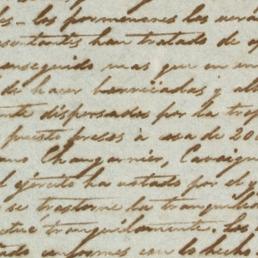 los pormenores los verá
han tratado de
conseguido mas que en un
de hacer barricadas y
dispersadas por la
puesto presos á esa de 20
Changarnier, Cavaig
ejército ha votado por el
se trastorne la tranquilid
tranquilamente. Los
informes con lo hecho